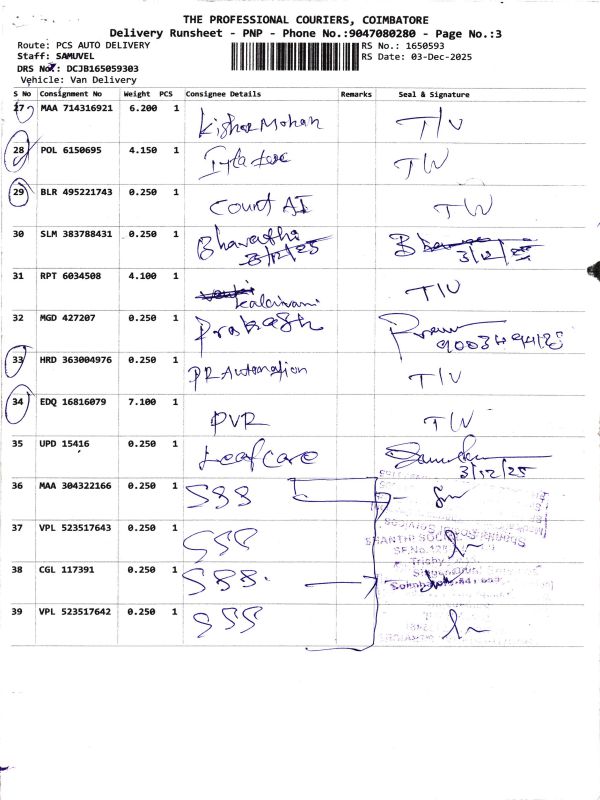 THE PROFESSIONAL COURIERS, COIMBATORE
Delivery Runsheet - PNP - Phone No.:9047080280 - Page No.:3
Route: PCS AUTO DELIVERY
RS No.: 1650593
Staff: SAMUVEL
RS Date: 03-Dec-2025
DRS No.: DCJB165059303
Vehicle: Van Delivery
S No Consignment No Weight PCS Consignee Details Remarks Seal & Signature
27 MAA 714316921 6.200 1 Kishor Mohan
28 POL 6150695 4.150 1 TW
29 BLR 495221743 0.250 1 Court AI TW
30 SLM 383788431 0.250 1 Bharathi
3/12/25 3/12/25
31 RPT 6034508 4.100 1
32 MGD 427207 0.250 1 Prakash
33 HRD 363004976 0.250 1 PR Automation
34 EDQ 16816079 7.100 1 PVR TW
35 UPD 15416 0.250 1 Leafcare
3/12/25
36 MAA 304322166 0.250 1 SSS
37 VPL 523517643 0.250 1 SSS
38 CGL 117391 0.250 1 SSS
39 VPL 523517642 0.250 1 SSS